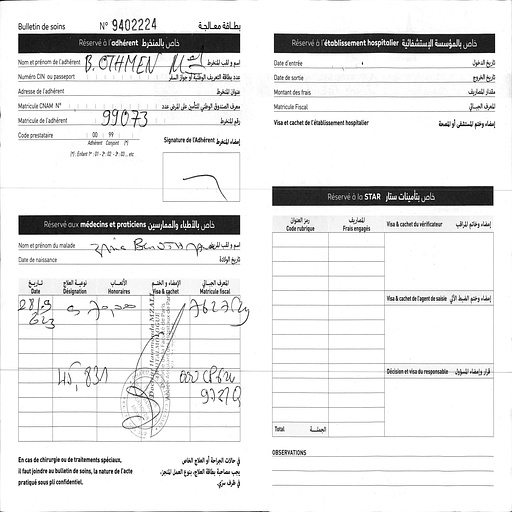 Bulletin de soins N° 9402224 بطاقة معالجة
Réservé à l'adhérent خاص بالمنخرط
Nom et prénom de l'adhérent B. OTHMEN اسم و لقب المنخرط
Numéro CIN ou passeport عدد بطاقة التعريف الوطنية أو جواز السفر
Adresse de l'adhérent عنوان المنخرط
Matricule CNAM N° معرف الصندوق الوطني للتأمين على المرض عدد
Matricule de l'adhérent 99073 رقم المنخرط
Code prestataire 00 99 Signature de l'Adhérent إمضاء المنخرط
Adhérent Conjoint (*)
(*) : Enfant 1er : 01 - 2e : 02 - 3e : 03 ... etc
Réservé aux médecins et praticiens خاص بالأطباء والممارسين
Nom et prénom du malade اسم و لقب المريض
Date de naissance تاريخ الولادة
تاريخ نوعية العلاج الأتعاب الإمضاء و الختم المعرف الجبائي
Date Désignation Honoraires Visa & cachet Matricule fiscal
28/9 70,000
45,831
En cas de chirurgie ou de traitements spéciaux,
il faut joindre au bulletin de soins, la nature de l'acte
pratiqué sous pli confidentiel.
في حالات الجراحة أو العلاج الخاص
يجب مصاحبة بطاقة العلاج، بنوع العمل المنجز،
في ظرف سري.
Réservé à l'établissement hospitalier خاص بالمؤسسة الإستشفائية
Date d'entrée تاريخ الدخول
Date de sortie تاريخ الخروج
Montant des frais مقدار المصاريف
Matricule Fiscal المعرف الجبائي
Visa et cachet de l'établissement hospitalier إمضاء وختم المستشفى أو المصحة
Réservé à la STAR خاص بتأمينات ستار
رمز العنوان المصاريف
Code rubrique Frais engagés Visa & cachet du vérificateur إمضاء وخاتم المراقب
Visa & cachet de l'agent de saisie إمضاء وختم الضبط الآلي
Décision et visa du responsable قرار وإمضاء المسؤول
Total الجملة
OBSERVATIONS